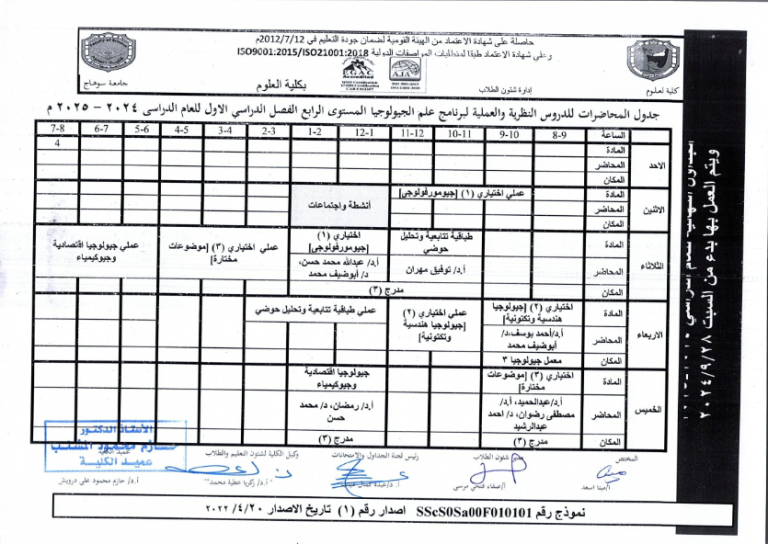 حاصلة على شهادة الاعتماد من الهيئة القومية لضمان جودة التعليم في 2012/7/12م
وعلى شهادة الاعتماد طبقا لمتطلبات المواصفات الدولية ISO9001:2015/ISO21001:2018
EGAC
AJA
جامعة سوهاج
بكلية العلوم
إدارة شئون الطلاب
كلية لعلوم
جدول المحاضرات للدروس النظرية والعملية لبرنامج علم الجيولوجيا المستوى الرابع الفصل الدراسي الاول للعام الدراسى ٢٠٢٤ – ٢٠٢٥ م
الساعة 8-9 9-10 10-11 11-12 12-1 1-2 2-3 3-4 4-5 5-6 6-7 7-8
الاحد
المادة 4
المحاضر
المكان
الاثنين
المادة عملي اختياري (١) [جيومورفولوجي]
المحاضر أنشطة واجتماعات
المكان
الثلاثاء
المادة طباقية تتابعية وتحليل حوضي اختياري (١) [جيومورفولوجي] عملي اختياري (٣) [موضوعات مختارة] عملي جيولوجيا اقتصادية وجيوكيمياء
المحاضر أ.د/ توفيق مهران أ.د/ عبدالله محمد حسن، د/ أبوضيف محمد
المكان مدرج (٣)
الاربعاء
المادة اختياري (٢) [جيولوجيا هندسية وتكتونية] عملي اختياري (٢) [جيولوجيا هندسية وتكتونية] عملي طباقية تتابعية وتحليل حوضي
المحاضر أ.د/أحمد يوسف،د/ أبوضيف محمد
المكان معمل جيولوجيا ٣
الخميس
المادة اختياري (٣) [موضوعات مختارة] جيولوجيا اقتصادية وجيوكيمياء
المحاضر أ.د/عبدالحميد، أ.د/ مصطفى رضوان، د/ احمد عبدالرشيد أ.د/ رمضان، د/ محمد حسن
المكان مدرج (٣) مدرج (٣)
ويتم العمل بها بدء من السبت ٢٠٢٤/٩/٢٨
المختص
شئون الطلاب
رئيس لجنة الجداول والامتحانات
وكيل الكلية لشئون التعليم والطلاب
عميد الكلية
أ/مينا اسعد
أ/صفاء فتحي مرسى
أ.د/ زكريا عطية محمد
أ.د/ حازم محمود على درويش
الأستاذ الدكتور
حازم محمود المشنب
عميد الكلية
نموذج رقم SScS0Sa00F010101 اصدار رقم (١) تاريخ الاصدار ٢٠٢٢/٤/٢٠